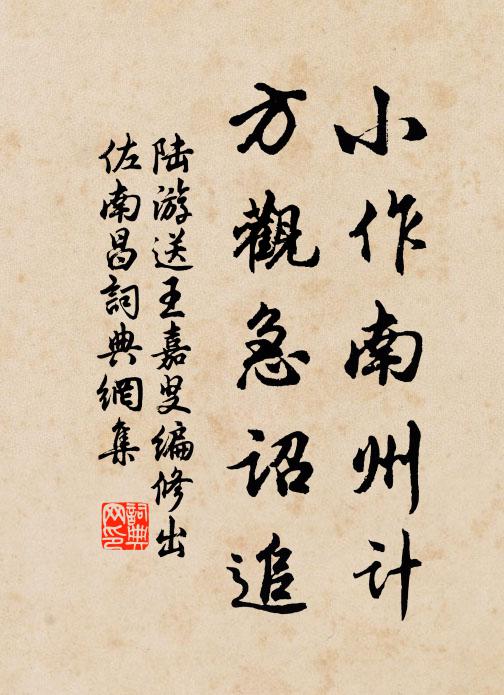 小作南州计
方觀急詔追
陆游送王嘉叟编修出
佐南昌詞典網集
詞典网印